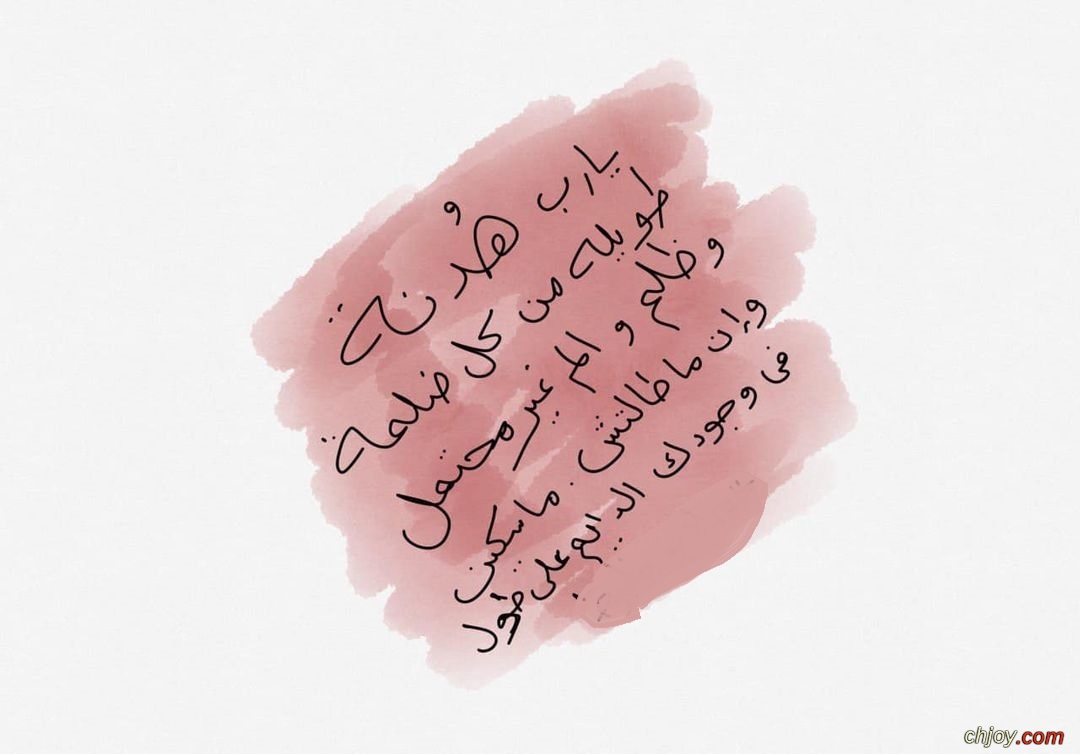 يارب هُدنة
طويله من كل ضلمة
و ظلم و الم غير محتمل
وإن ما طالتش . ماسكين
فى وجودك الدايم على طول
chjoy.com